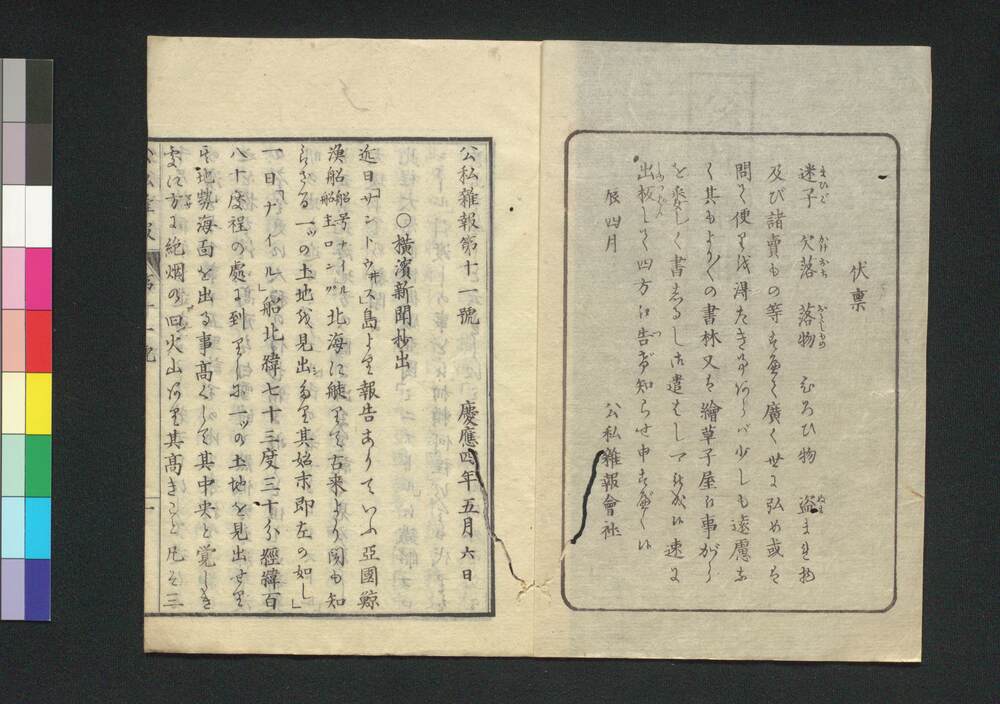 伏禀
迷子 欠落 落物 ひろひ物 盗まれ物
及び諸賣もの等すべて廣く世に弘め或は
問て便りを得たき事あらバ少しも遠慮な
く其もより〳〵の書林又は繪草子屋に事がら
を委しく書しるし御遣ハし被成候ハヽ速に
出板して四方に告げ知らせ申すべく候
辰四月
公私雜報會社
公私雜報第十一號 慶應四年五月六日
○橫濱新聞抄出
近日「サントウ井ス」島より報告ありていふ亞國鯨
漁船 船号ナイル 船主ロング 北海に航りて古来より聞も知
らざる一ツの土地を見出せり其始末即左の如し」
一日「ナイル」船北緯七十三度三十分經緯百
八十度程の處に到りしに一ツの土地を見出せり
其地勢海面を出る事高くして其中央と覚しき
處に方に絶烟の旧火山あり其高きこと凡そ三